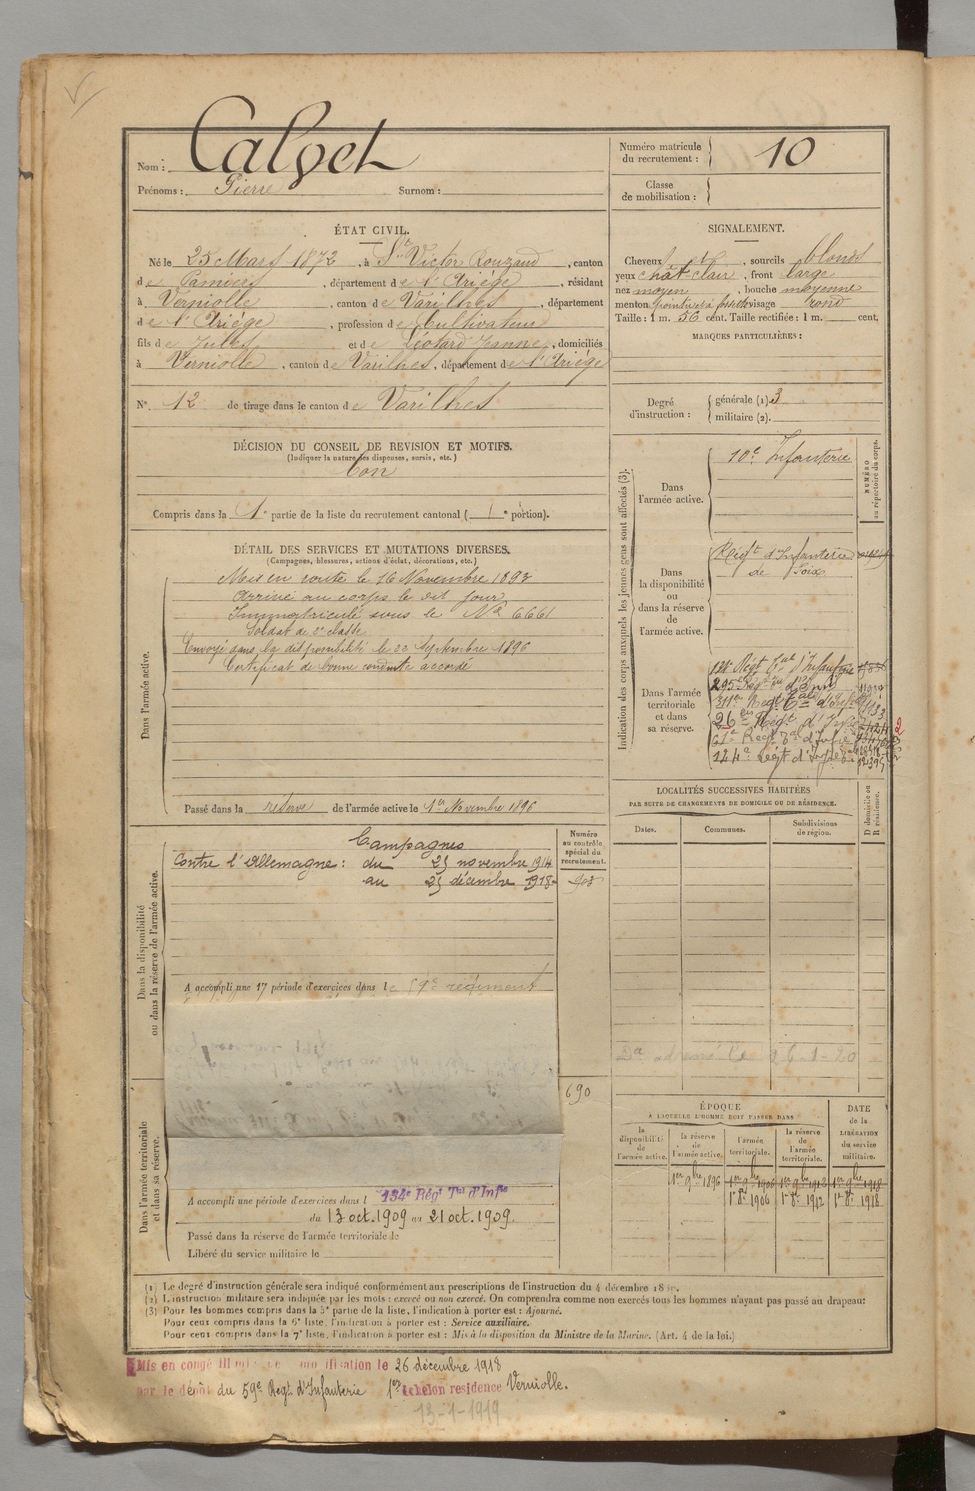 Nom : Calvet
Prénoms : Pierre Surnom :
Numéro matricule du recrutement : 10
Classe de mobilisation :
ÉTAT CIVIL.
Né le 25 Mars 1872, à St Victor Rouzaud, canton
de Pamiers, département de l'Ariège, résidant
à Verniolle, canton de Varilhes, département
de l'Ariège, profession de Cultivateur
fils de Jules et de Léotard Jeanne, domiciliés
à Verniolle, canton de Varilhes, département de l'Ariège
N° 12 de tirage dans le canton de Varilhes
DÉCISION DU CONSEIL DE REVISION ET MOTIFS.
(Indiquer la nature des dispenses, sursis, etc.)
bon
Compris dans la 1e partie de la liste du recrutement cantonal ( 1e portion).
SIGNALEMENT.
Cheveux, sourcils blonds
yeux chât clair, front large
nez moyen, bouche moyenne
menton visage rond
Taille : 1 m. 56 cent. Taille rectifiée : 1 m. cent.
MARQUES PARTICULIÈRES :
Degré d'instruction :
générale (1) 3
militaire (2).
DÉTAIL DES SERVICES ET MUTATIONS DIVERSES.
(Campagnes, blessures, actions d'éclat, décorations, etc.)
Dans l'armée active.
Mis en route le 16 Novembre 1893
Arrivé au corps le dit jour
Immatriculé sous le No 6661
Soldat de 2e classe
Envoyé dans la disponibilité le 22 Septembre 1896
Certificat de bonne conduite accordé
Passé dans la réserve de l'armée active le 1er Novembre 1896
Indication des corps auxquels les jeunes gens sont affectés (3).
NUMÉRO au répertoire du corps.
Dans l'armée active.
10e Infanterie
Dans la disponibilité ou dans la réserve de l'armée active.
Régt d'Infanterie
de Foix
Dans l'armée territoriale et dans sa réserve.
134e Régt tal d'Infanterie
295e Régt
311e Régt
26e Régt d'Infie
61e Régt tal d'Infie
144e Régt d'Infie
Dans la disponibilité ou dans la réserve de l'armée active.
Campagnes
Contre l'Allemagne : du 25 novembre 1914
au 25 décembre 1918
Numéro au contrôle spécial du recrutement.
908
A accompli une 1e période d'exercices dans le 59e régiment
690
LOCALITÉS SUCCESSIVES HABITÉES
PAR SUITE DE CHANGEMENTS DE DOMICILE OU DE RÉSIDENCE.
Dates. Communes. Subdivisions de région. D domicile ou R résidence.
26-1-20
ÉPOQUE
A LAQUELLE L'HOMME DOIT PASSER DANS
la disponibilité de l'armée active. la réserve de l'armée active. l'armée territoriale. la réserve de l'armée territoriale. DATE de la LIBÉRATION du service militaire.
1er 9bre 1896 1er 9bre 1906 1er 9bre 1912 1er 9bre 1918
1er 8bre 1906 1er 8bre 1912 1er 8bre 1918
Dans l'armée territoriale et dans sa réserve.
A accompli une période d'exercices dans l 134e Régt Tal d'Infie
du 13 oct. 1909 au 21 oct. 1909.
Passé dans la réserve de l'armée territoriale le
Libéré du service militaire le
(1) Le degré d'instruction générale sera indiqué conformément aux prescriptions de l'instruction du 4 décembre
(2) L'instruction militaire sera indiquée par les mots : exercé ou non exercé. On comprendra comme non exercés tous les hommes n'ayant pas passé au drapeau.
(3) Pour les hommes compris dans la 5e partie de la liste, l'indication à porter est : Ajourné.
Pour ceux compris dans la 6e liste, l'indication à porter est : Service auxiliaire.
Pour ceux compris dans la 7e liste, l'indication à porter est : Mis à la disposition du Ministre de la Marine. (Art. 4 de la loi.)
Mis en congé le 26 décembre 1918
par le dépôt du 59e Régt. d'Infanterie 1er échelon residence Verniolle.
13-1-1919